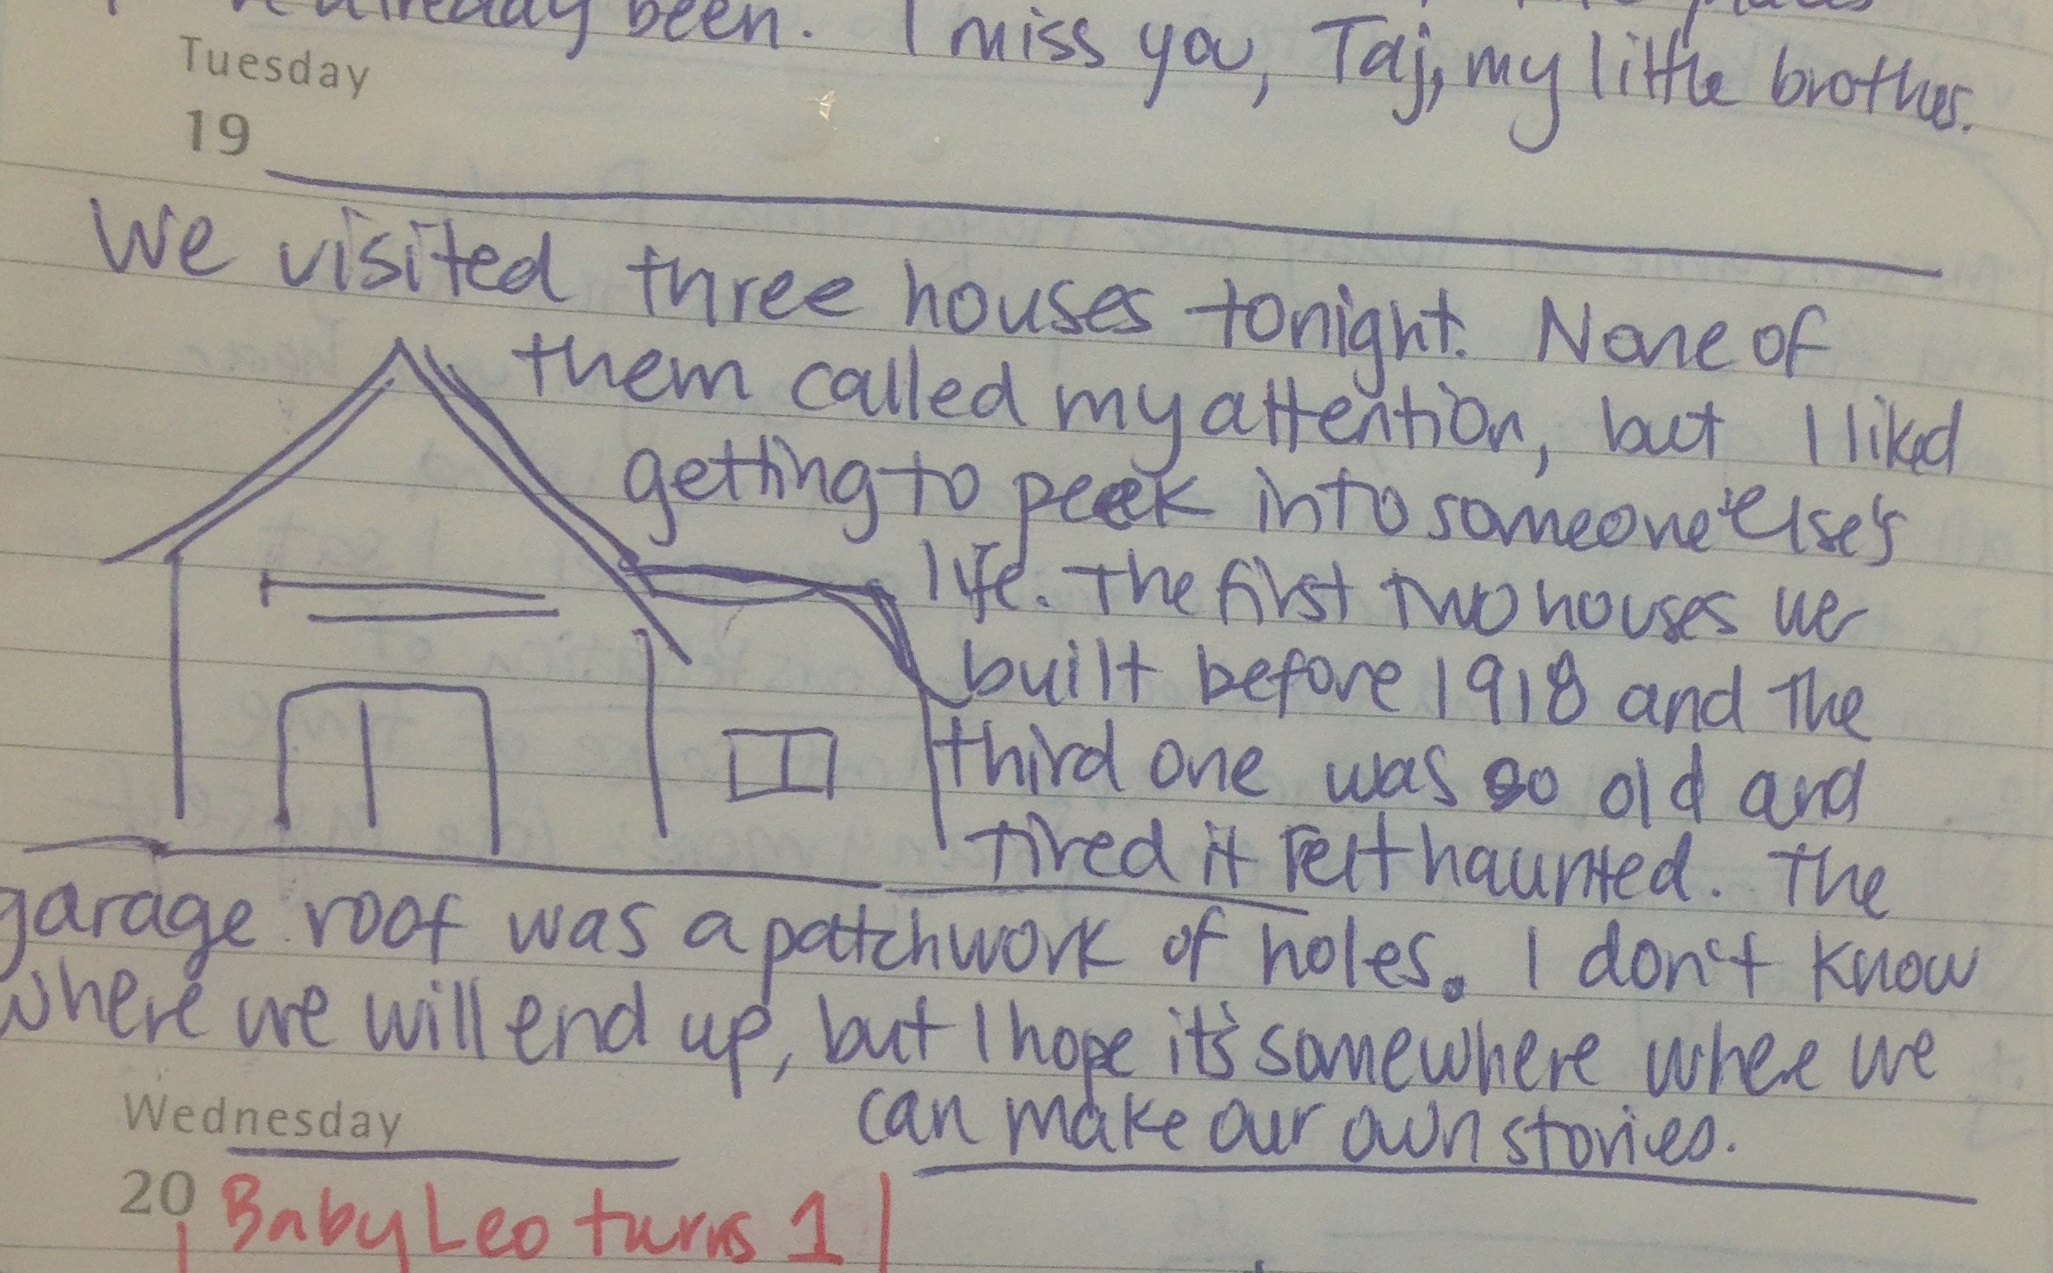 already been. I miss you, Taj, my little brother.
Tuesday
19
We visited three houses tonight. None of
them called my attention, but I liked
getting to peek into someone else's
life. The first two houses we
built before 1918 and the
third one was so old and
tired it felt haunted. The
garage roof was a patchwork of holes. I don't know
where we will end up, but I hope it's somewhere where we
can make our own stories.
Wednesday
20
Baby Leo turns 1